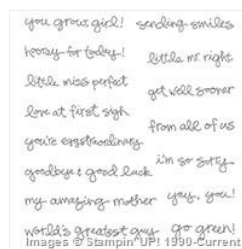 you grow, girl!
sending smiles
hooray for today!
little mr. right
little miss perfect
get well sooner
love at first sigh
from all of us
you're eggstraordinary
i'm so sorry
goodbye & good luck
my amazing mother
yay, you!
world's greatest guy
go green!
Images © Stampin' UP! 1990-Current